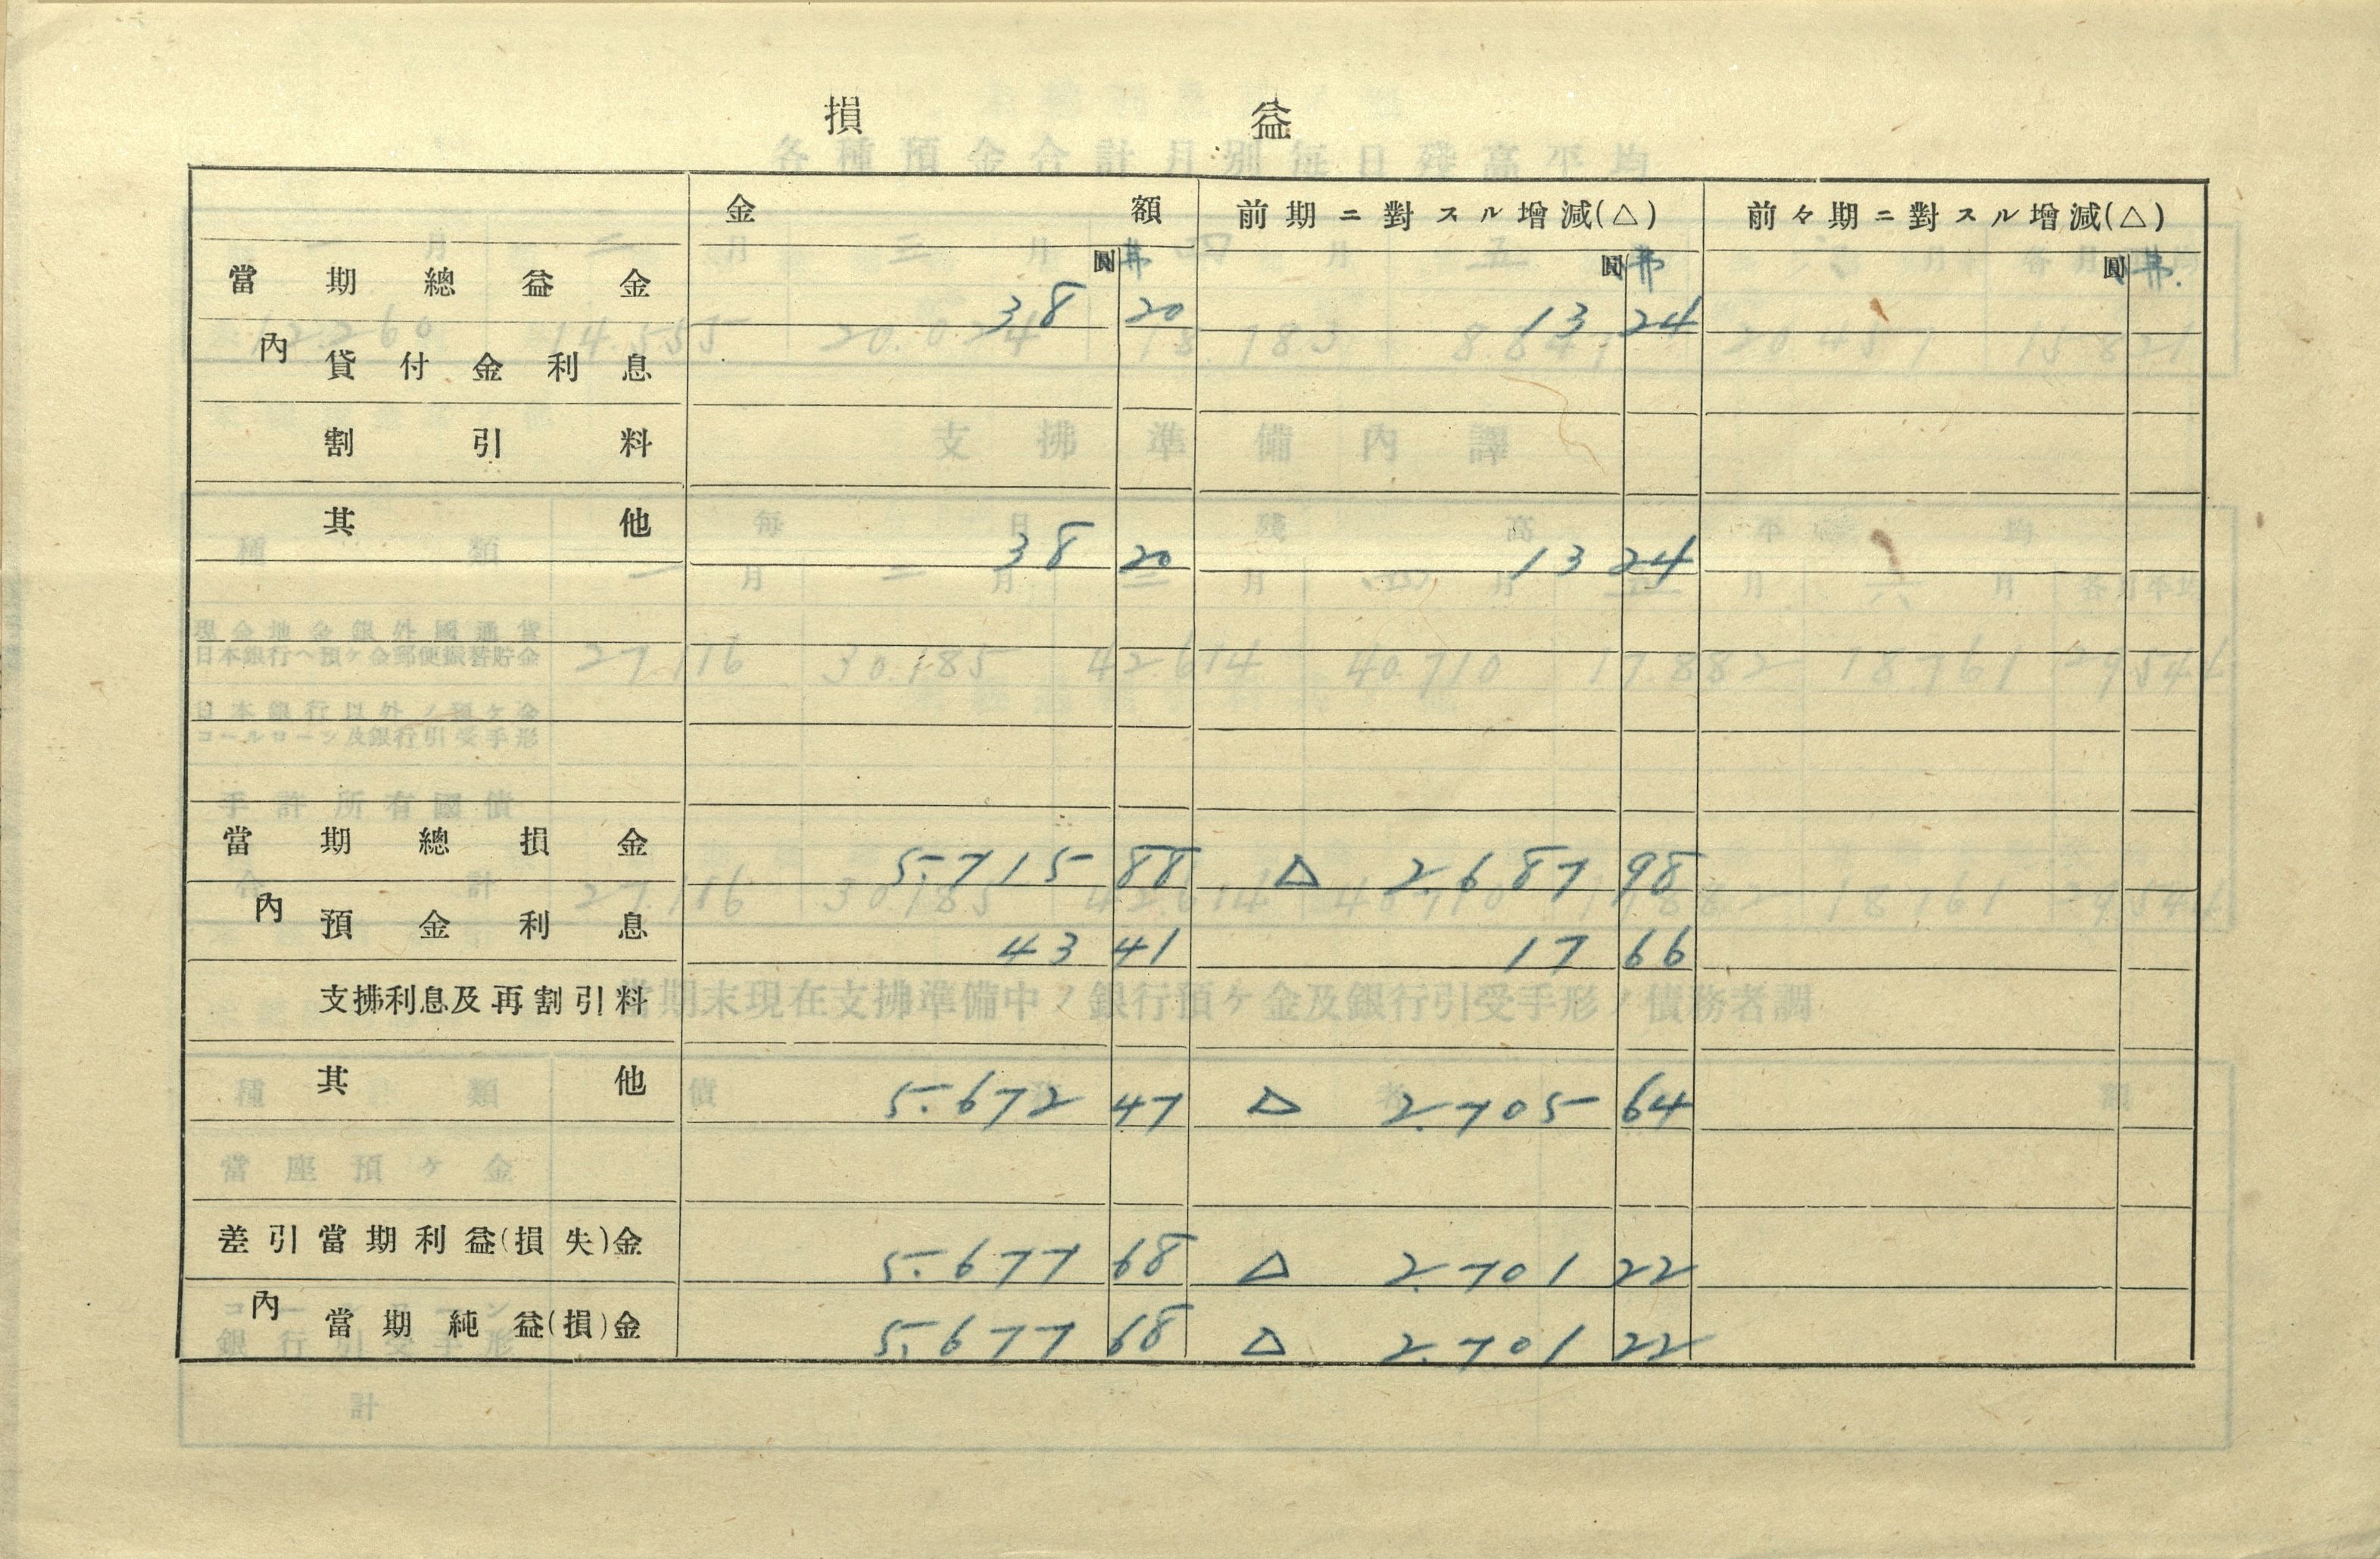 損益
金額 前期ニ對スル增減(△) 前々期ニ對スル增減(△)
圓 弗 圓 弗 圓 弗.
當期總益金 38 20 13 24
內 貸付金利息
割引料
其他 38 20 13 24
當期總損金 5.715 88 △ 2.687 98
內 預金利息 43 41 17 66
支拂利息及再割引料
其他 5.672 47 △ 2.705 64
差引當期利益(損失)金 5.677 68 △ 2.701 22
內 當期純益(損)金 5.677 68 △ 2.701 22